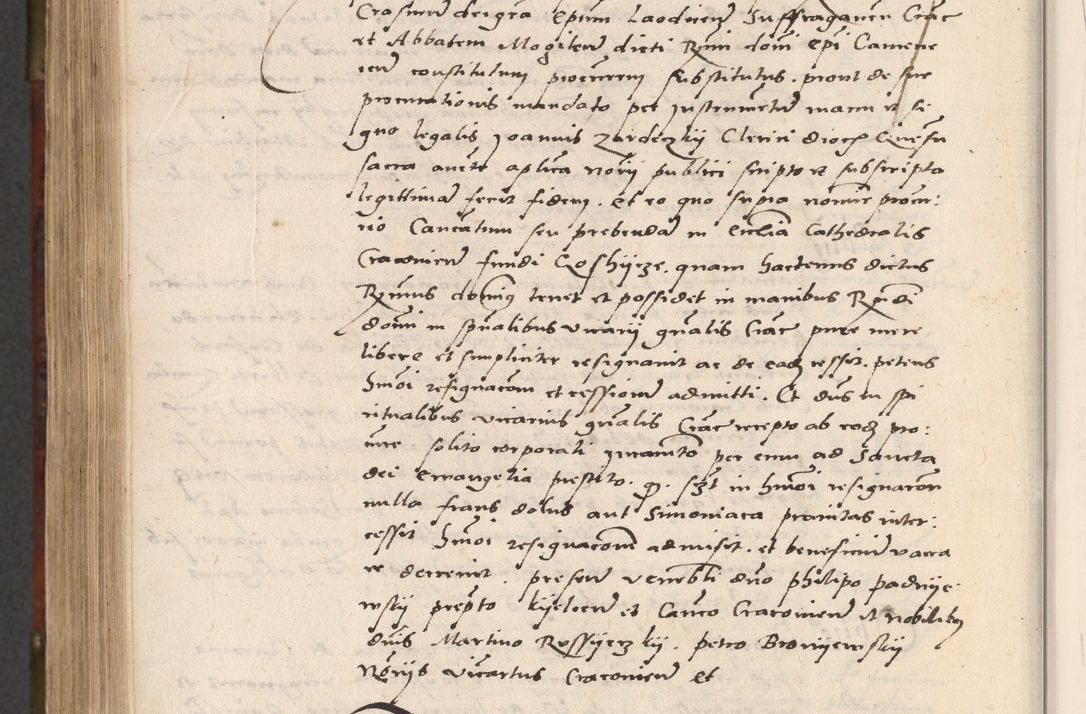 Erasmum dei gra Epum Laodiceñ Suffraganeu Crac
et Abbatem Mogileñ dicti Rmi domi epi Camene
ceñ constitutum procurem substitutus . prout de sue
procurationis mandato per instrumetu manu et si
gno legalis Joannis Zardeczkij Clerici dioc Gnesn
sacra aucte aplica Norij publici scripto et subscripto
legittima fecit fidem . et eo quo supra nomine procur:
rio Cancatum seu prebenda in Ecclia Cathedralis
Cracovieñ fundi Coshijcze . quam hactenus dictus
Rmus doming tenet et possidet in manibus Rndi
domi in spualibus vicarij gnalis Crac pure mere
libere et simpliciter resignavit ac de eadz cessit . petens
hmoi resignacom et cessione admitti . Et dns in spi
ritualibus vicarius gnalis Crac recepto ab eodz pro:
cure solito corporali juramto per eum ad Sancta
dei Ewangelia prestito . q . sz in hmoi resignacon
nulla fraus dolus aut Simoniaca pravitas inter:
cessit hmoi resignacom admisit . et beneficiu vaca
re decrevit . preseñ venebli dno philipo padnije
wskij prepto kijelceñ et Canco Cracovieñ et nobilibz
dnis Martino Russijeczkij . petro Bronijewskij
Norijs vicartus Cracovieñ et